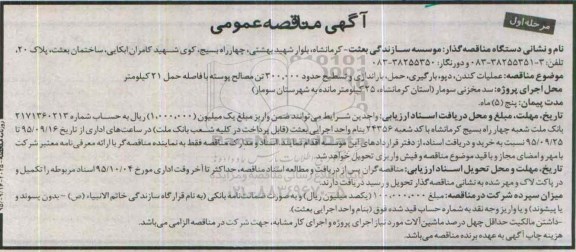 آگهی مناقصه عمومی
مرحله اول
نام و نشانی دستگاه مناقصه گذار: موسسه سازندگی بعثت - کرمانشاه، بلوار شهید بهشتی، چهارراه بسیج، کوی شهید کامران ابکایی، ساختمان بعثت، پلاک ۲۰،
تلفن: ۳-۳۸۲۵۵۳۵۱-۰۸۳ و دورنگار: ۳۸۲۵۵۳۵۰-۰۸۳
موضوع مناقصه: عملیات کندن، دپو، بارگیری، حمل، باراندازی و تسطیح حدود ۳۰۰،۰۰۰ تن مصالح پوسته با فاصله حمل ۲۱ کیلومتر
محل اجرای پروژه: سد مخزنی سومار (استان کرمانشاه، ۲۵ کیلومتر مانده به شهرستان سومار)
مدت پیمان: پنج (۵) ماه.
تاریخ، مهلت، مبلغ و محل دریافت اسناد ارزیابی: واجدین شرایط می توانند ضمن واریز مبلغ یک میلیون (۱،۰۰۰،۰۰۰) ریال به حساب شماره ۲۱۷۱۳۶۰۲۱۳
بانک ملت شعبه چهار راه بسیج کرمانشاه با کد شعبه ۲۴۳۵۶ بنام واحد اجرایی بعثت (قابل پرداخت در کلیه شعب بانک ملت) در ساعت های اداری از تاریخ ۹۵/۰۹/۱۶ تا
۹۵/۰۹/۲۵ نسبت به خرید و دریافت اسناد، از دفتر قراردادهای این موسسه اقدام نمایند اسناد و مدارک مناقصه فقط به نماینده مناقصه گر با ارائه معرفی نامه معتبر شرکت
با مهر و امضای مجاز و با قید موضوع مناقصه و فیش واریزی تحویل خواهد شد.
تاریخ، مهلت و محل تحویل اسناد ارزیابی: مناقصه گران پس از دریافت و مطالعه اسناد مناقصه، حداکثر تا آخر وقت اداری مورخ ۹۵/۱۰/۰۴ اسناد مربوطه را تکمیل و
در پاکت لاک و مهر شده به نشانی مناقصه گذار تحویل و رسید دریافت دارند.
میزان سپرده شرکت در مناقصه: مبلغ ۱۰۰،۰۰۰،۰۰۰ (یکصد میلیون ریال) و به صورت ضمانت نامه بانکی (به نام قرارگاه سازندگی خاتم الانبیاء (ص) - بدون پسوند و
یا پیشوند) و یا واریز وجه نقد به شماره حساب قید شده فوق (بنام واحد اجرایی بعثت).
-داشتن مالکیت حداقل چهل درصد ماشین آلات مورد نیاز اجرای پروژه و اجرای کار مشابه، جهت شرکت در مناقصه الزامی می باشد.
هزینه چاپ آگهی به عهده برنده مناقصه می باشد.